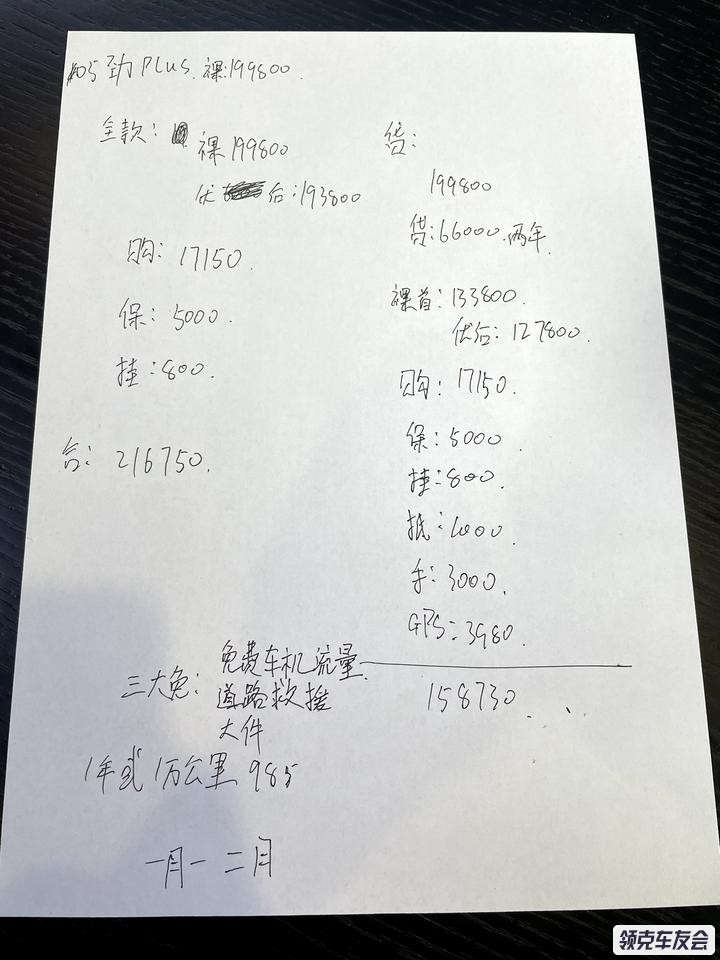 05劲Plus.裸:199800.
全款:
裸199800
优后:193800
购:17150.
保:5000.
挂:800.
合:216750.
贷:
199800
贷:66000.两年.
裸首:133800.
优后:127800.
购:17150.
保:5000.
挂:800.
抵:1000.
手:3000.
GPS:3980.
158730..
三大免:
免费车机流量.
道路救援
大件
1年或1万公里985
一月一二月
领克车友会